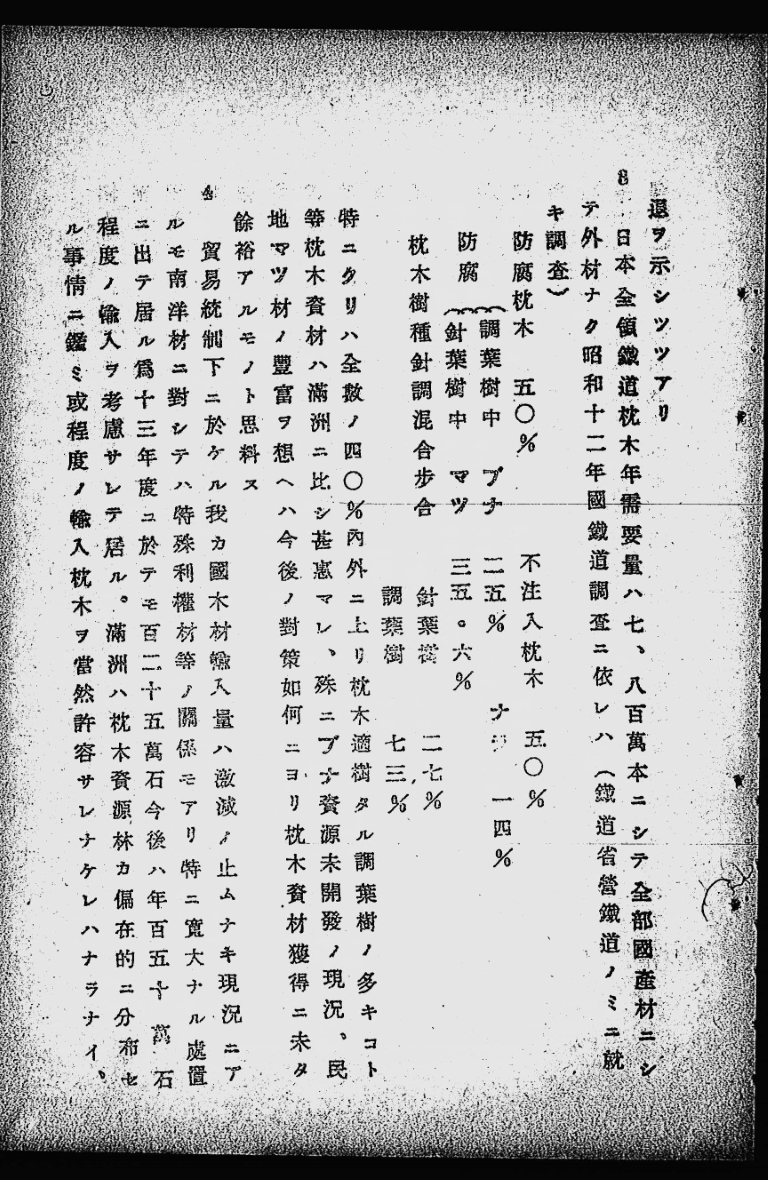 退ヲ示シツツアリ
8 日本全領鐵道枕木年需要量ハ七、八百萬本ニシテ全部國產材ニシ
テ外材ナク昭和十二年國鐵道調査ニ依レハ(鐵道省營鐵道ノミニ就
キ調査)
防腐枕木 五〇% 不注入枕木 五〇%
防腐 調葉樹中 ブナ 二五% ナラ 一四%
針葉樹中 マツ 三五。六%
枕木樹種針調混合步合 針葉樹 二七%
調葉樹 七三%
特ニクリハ全數ノ四〇%內外ニ上リ枕木適樹タル調葉樹ノ多キコト
等枕木資材ハ滿洲ニ比シ甚惠マレ、殊ニブナ資源未開發ノ現況、民
地マツ材ノ豐富ヲ想ヘハ今後ノ對策如何ニヨリ枕木資材獲得ニ未タ
餘裕アルモノト思料ス
4 貿易統制下ニ於ケル我カ國木材輸入量ハ激減ノ止ムナキ現況ニア
ルモ南洋材ニ對シテハ特殊利權材等ノ關係モアリ特ニ寬大ナル處置
ニ出テ居ル爲十三年度ニ於テモ百二十五萬石今後ハ年百五十萬石
程度ノ輸入ヲ考慮サレテ居ル。滿洲ハ枕木資源林カ偏在的ニ分布セ
ル事情ニ鑑ミ或程度ノ輸入枕木ヲ當然許容サレナケレハナラナイ、